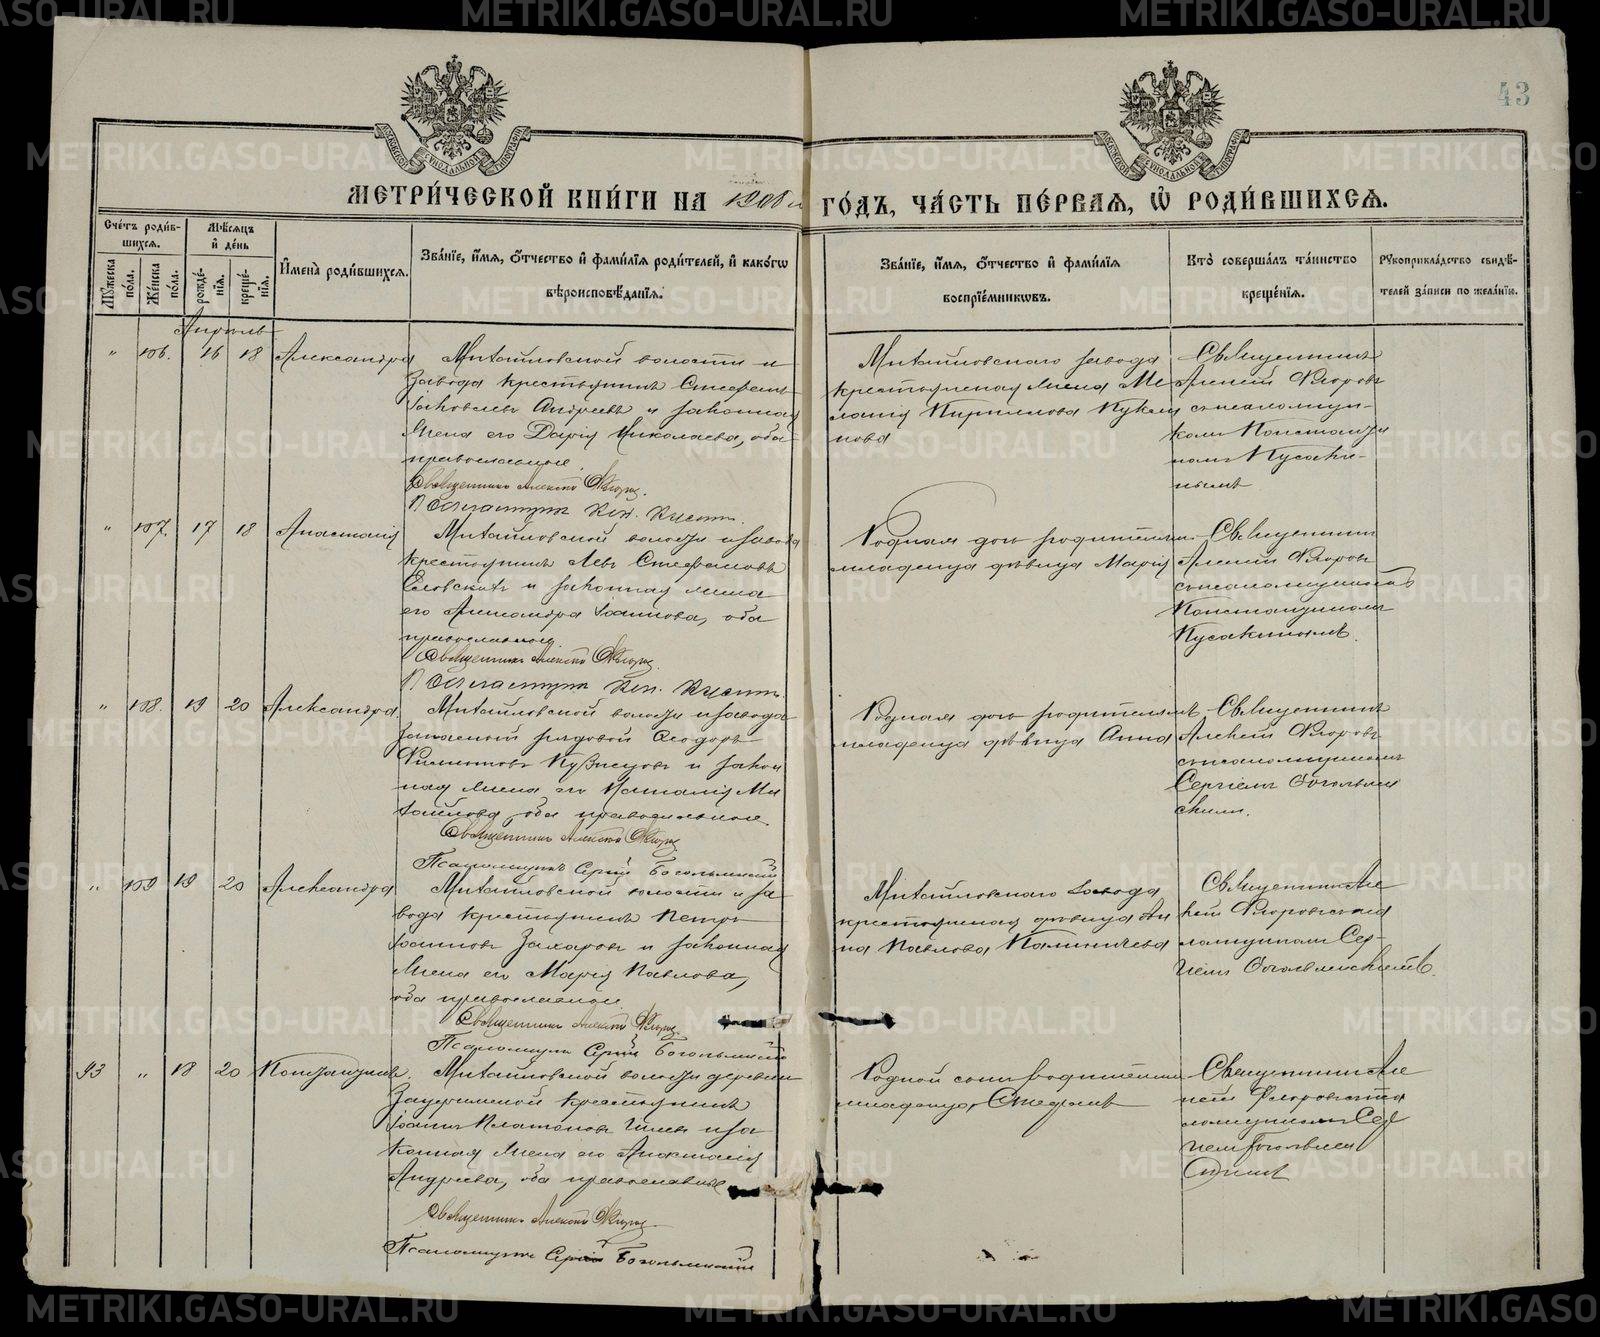 43
МЕТРИ́ЧЕСКОЙ КНИ́ГИ НА 1908 й ГО́ДЪ, ЧА́СТЬ ПЕ́РВАЯ, Ѡ҆ РОДИ́ВШИХСЯ.
Сче́тъ роди́в-
шихся.
Мѣ́сяцъ
и҆ де́нь
Мꙋ́жеска
по́ла.
Же́нска
по́ла.
рожде́-
нїя.
креще́-
нїя.
И҆мена̀ роди́вшихся.
Зва́нїе, и҆́мя, ѻ҆́тчество и҆ фами́лїя роди́телей, и҆ како́гѡ
вѣроисповѣ́данїя.
Зва́нїе, и҆́мя, ѻ҆́тчество и҆ фами́лїя
воспрїе́мникѡвъ.
Кто̀ соверша́лъ та́инство
креще́нїя.
Рꙋкоприкла́дство свидѣ́-
телей за́писи по жела́нїю.
Апрѣль
" 106. 16 18 Александра
Михайловской волости и
завода крестьянинъ Стефанъ
Іаковлевъ Андреевъ и законная
жена его Дарія Николаева, оба
православные.
Священникъ Алексій Флоровъ.
Михайловскаго завода
крестьянская жена Ме-
ланія Кириллова Кукли-
нова
Священникъ
Алексій Флоровъ
съ псаломщи-
комъ Константи
номъ Кусаки-
нымъ
" 107. 17 18 Анастасія
Михайловской волости и завода
крестьянинъ Левъ Стефановъ
Еловскихъ и законная жена
его Александра Іоаннова, оба
православные
Священникъ Алексій Флоровъ.
Родная дочь родителямъ
младенца дѣвица Марія
Священникъ
Алексій Флоровъ
съ псаломщикомъ
Константиномъ
Кусакинымъ.
" 108. 19 20 Александра.
Михайловской волости и завода
запасный рядовой Ѳеодоръ
Филиповъ Кузнецовъ и закон
ная жена его Наталія Ми
хайлова, оба православные
Священникъ Алексій Флоровъ
Псаломщикъ Сергій Богоявленскій
Родная дочь родителямъ
младенца дѣвица Анна
Священникъ
Алексій Флоровъ
съ псаломщикомъ
Сергіемъ Богоявлен
скимъ.
" 109 19 20 Александра
Михайловской волости и за
вода крестьянинъ Петръ
Іоанновъ Захаровъ и законная
жена его Марія Павлова,
оба православные
Священникъ Алексій Флоровъ
Псаломщикъ Сергій Богоявленскій
Михайловскаго завода
крестьянская дѣвица Ан
на Павлова Калиничева
Священникъ Але
ксій Флоровъ съ пса
ломщикомъ Сер-
гіемъ Богоявленскимъ.
93 " 18 20 Константинъ.
Михайловской волости деревни
крестьянинъ
Іоаннъ Платоновъ и за
конная жена его Анастасія
Андреева, оба православные
Священникъ Алексій Флоровъ
Псаломщикъ Сергій Богоявленскій
Родной сынъ родителямъ
младенца, Стефанъ
Священникъ Але
ксій Флоровъ съ пса
ломщикомъ Сер
гіемъ Богоявлен
скимъ
METRIKI.GASO-URAL.RU